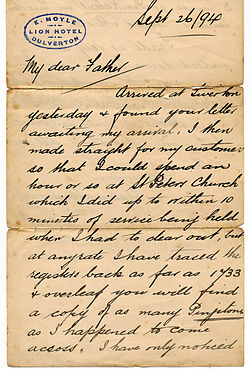 E. MOYLE
LION HOTEL
DULVERTON
Sept 26/94
My dear Father
Arrived at Tiverton
yesterday & found your letter
awaiting my arrival. I then
made straight for my customer
so that I could spend an
hour or so at St Peters Church
which I did up to within 10
minutes of service being held
when I had to clear out, but
at anyrate I have traced the
registers back as far as 1733
& overleaf you will find
a copy of as many Pimptons
as I happened to come
across. I have only noticed